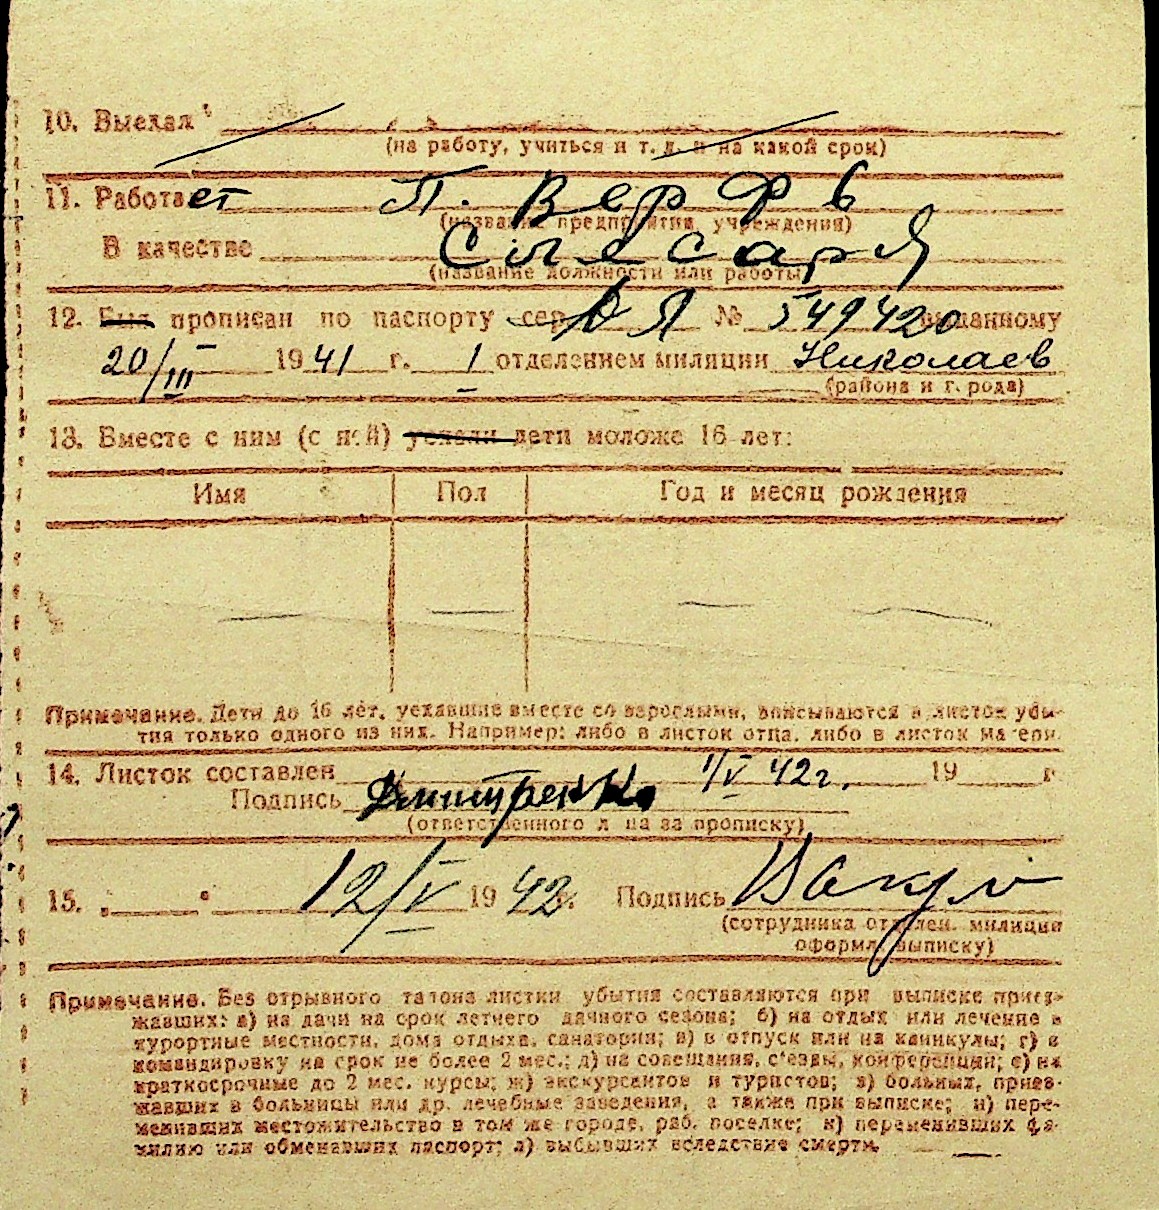 10. Выехал
(на работу, учиться и т. д. и на какой срок)
11. Работает П. Верфь
(название предприятия, учреждения)
В качестве Слесаря
(название должности или работы)
12. Был прописан по паспорту сер. № 549420 выданному
20/III 1941 г. 1 отделением милиции Николаев
(района и г. рода)
13. Вместе с ним (с ней) уехали дети моложе 16 лет:
Имя Пол Год и месяц рождения
Примечание. Дети до 16 лет, уехавшие вместе со взрослыми, вписываются в листок убы-
тия только одного из них. Например: либо в листок отца, либо в листок матери.
14. Листок составлен 1/V 42г. 19 г.
Подпись Дмитренко
(ответственного лица за прописку)
15. „ “ 12/V 1942 г. Подпись
(сотрудника отделен. милиции
оформл. выписку)
Примечание. Без отрывного талона листки убытия составляются при выписке приез-
жавших: а) на дачи на срок летнего дачного сезона; б) на отдых или лечение в
курортные местности, дома отдыха, санатории; в) в отпуск или на каникулы; г) в
командировку на срок не более 2 мес.; д) на совещания, с'езды, конференции; е) на
краткосрочные до 2 мес. курсы; ж) экскурсантов и туристов; з) больных, приез-
жавших в больницы или др. лечебные заведения, а также при выписке; и) пере-
менивших местожительство в том же городе, раб. поселке; к) переменивших фа-
милию или обменявших паспорт; л) выбывших вследствие смерти.